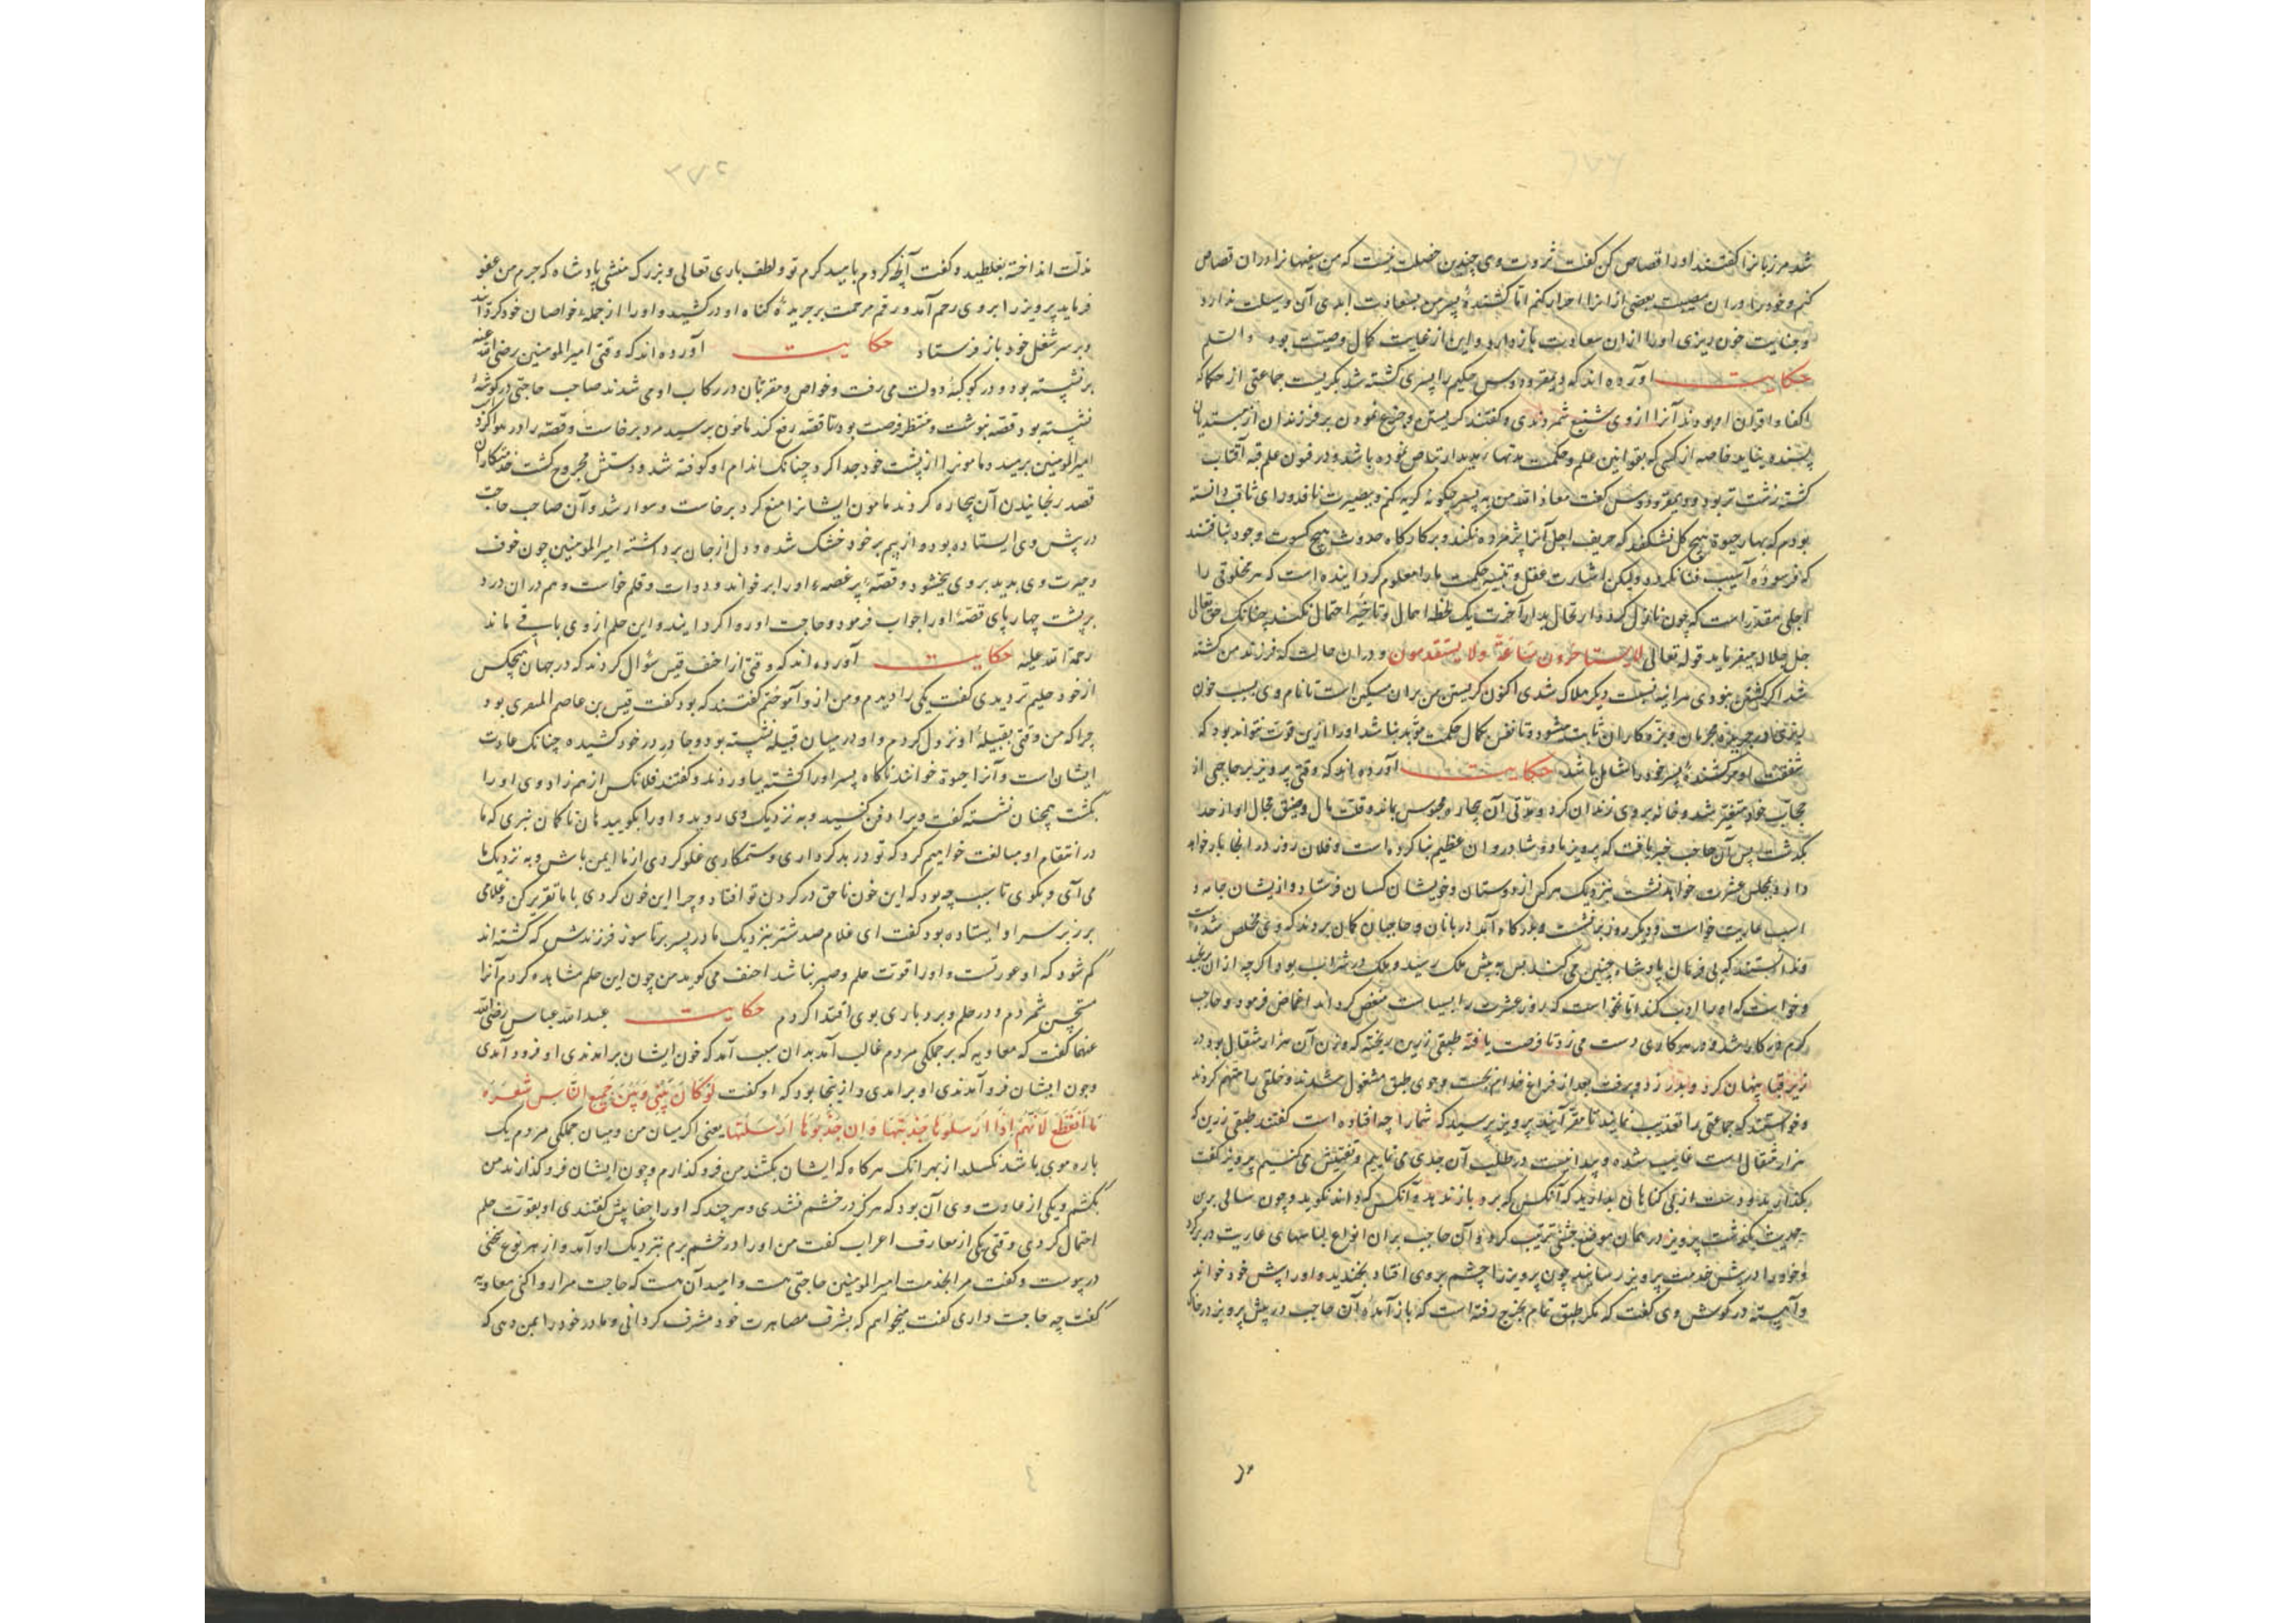 شد مرزبانرا گفتند اورا قصاص کن گفت ثروت وی چندین خصلت نیست که من سفیهانرا در ان قصاص
کنم و خود را در ان مصیبت بعضی از اندا احراز کنم اما کشندهٔ پسر من بسعادت ابدی آن وسیلت ندارد
و جنایت خون ریزی اورا از این سعادت باز دارد و این از غایت کمال وصیت بود والسلم
حکایت آورده اند که حکیم را پسری کشته شد بگریست جماعتی از حکما که
اکفا و اقران او بودند آنرا از وی شنیع شمردندی و گفتند گریستن و جزع نمودن بر فرزندان از مبتدیان
پسندیده نباید خاصه از کسی که بقوانین علم و حکمت ارتیاض نموده باشد و در فنون علم قبهٔ آفتاب
گشته زشت تر بود گفت معاذ الله من به پسر چگونه گریه کنم و ببصیرت نافذ و رای ثاقب دانسته
بودم که بهار حیوة هیچ گل نشکفد که خریف اجل آنرا پژمرده نکند و بر کارگاه حدوث هیچ کسوت وجود نبافتند
که فرسودهٔ آسیب فنا نگردد ولیکن اشارت عقل و تنبیه حکمت ما را معلوم گردانیده است که هر مخلوقی را
اجلی مقدر است که چون نازل گردد ارتحال بدار آخرت یک لحظه امهال و تاخیر احتمال نکند چنانک حق تعالی
جل جلاله میفرماید قوله تعالی لا یستاخرون ساعة ولا یستقدمون و در ان حالت که فرزند من کشته
شد اگر کشتن نبودی هر اینه بسبب دیگر هلاک شدی اکنون گریستن من بران مسکین است تا نام وی بسبب خون
ریزی در جریدهٔ مجرمان و بزه کاران ثابت نشود و تا نفس بکمال حکمت مؤید نباشد اورا ازین قوت نتواند بود که
شفقت او بر کشندهٔ پسر خود را شامل باشد حکایت آورده اند که وقتی پرویز بر حاجبی از
حجاب خود متغیر شد و خانه بر وی زندان کرد و مدتی آن بیچاره محبوس بماند و قلت مال و ضیق مجال او از حد
بگذشت پس آن حاجب خبر یافت که پرویز شادروان عظیم بنا کرده است و فلان روز در انجا بار خواهد
داد و بمجلس عشرت خواهد نشست بنزدیک هر کس از دوستان و خویشان کسان فرستاد و از یشان جامه و
اسب عاریت خواست و دیگر روز برنشست و بدرگاه آمد دربانان و حاجبان گمان بردند که وی مخلص شده است
و ندانستند که بی فرمان پادشاه چنین می کند پس به پیش ملک رسید و ملک در شراب بود اگر چه از ان برنجید
و خواست که اورا ادب کند اما نخواست که روز عشرت را بسیاست منغص گرداند اغماض فرمود و حاجب
گرم در کار شد و در هر کاری دست می زد تا فرصت یافته طبقی زرین ریخته که وزن آن هزار مثقال بود در
زیر قبا پنهان کرد و بدر زد و برفت بعد از فراغ خدام بجست و جوی طبق مشغول شدند و خلقی را متهم کردند
و خواستند که جماعتی را تعذیب نمایند تا مقر آیند پرویز پرسید که شما را چه افتاده است گفتند طبقی زرین که
هزار مثقال است غایب شده و پیدا نیست در طلب آن جدی می نماییم و تفتیش می کنیم پرویز گفت
بگذارید و دست از بی گناهان بدارید که آنکس که برد باز ندهد و آنکس که داند نگوید و چون سالی برین
حدیث بگذشت پرویز در همان موضع جشنی ترتیب کرد و آن حاجب بران انواع لباسهای عاریت در بر کرد
و خود را در پیش خدمت پرویز رسانید چون پرویز را چشم بر وی افتاد بخندید و اورا پیش خود خواند
و آهسته در گوش وی گفت که مگر طبق تمام بخرج رفته است که باز آمدهٔ آن حاجب در پیش پرویز در خاک
مذلت انداخته بغلطید و گفت آنچ کردم بامید کرم تو و لطف باری تعالی و بزرگ منشی پادشاه که جرم من عفو
فرماید پرویز را بر وی رحم آمد و رقم مرحمت بر جریدهٔ گناه او در کشید و اورا از جمله خواصان خود گردانید
و بر سر شغل خود باز فرستاد حکایت آورده اند که وقتی امیر المومنین رضی الله عنه
بر نشسته بود و در کوکبهٔ دولت می رفت و خواص و مقربان در رکاب او می شدند صاحب حاجتی در گوشهٔ
نشسته بود قصه نوشت و منتظر فرصت بود تا قصه رفع کند مامون برسید مرد برخاست و قصه را در هوا کرد مرکب
امیر المومنین برمید و مامونرا از پشت خود جدا کرد چنانک اندام او کوفته شد و دستش مجروح گشت خدمتکاران
قصد رنجانیدن آن بیچاره کردند مامون ایشانرا منع کرد برخاست و سوار شد و آن صاحب حاجت
در پیش وی ایستاده بود و از بیم بر خود خشک شده و دل از جان برداشته امیر المومنین چون خوف
و حیرت وی بدید بر وی ببخشود و قصهٔ پر غصهٔ اورا بر خواند و دوات و قلم خواست و هم در ان درد
بر پشت چهارپای قصهٔ اورا جواب فرمود و حاجت اورا روا گردانید و این حلم از وی باقی ماند
رحمة الله علیه حکایت آورده اند که وقتی از احنف قیس سؤال کردند که در جهان هیچکس
از خود حلیم تر دیدی گفت یکی را دیدم و من از و آموختم گفتند که بود گفت قیس بن عاصم المنقری بود
چرا که من وقتی بقبیلهٔ او نزول کردم و او در میان قبیله نشسته بود و چادر در خود کشیده چنانک عادت
ایشان است و آنرا حبوة خوانند ناگاه پسر اورا کشته بیاوردند و گفتند فلانکس از هم زاد وی اورا
بکشت همچنان نشسته گفت ویرا دفن کنید و به نزدیک وی روید و اورا بگویید هان تا گمان نبری که ما
در انتقام او مبالغت خواهیم کرد که تو در بد کرداری و ستمکاری غلو کردی از ما ایمن باش و به نزدیک ما
می آی و بگوی تا سبب چه بود که این خون ناحق در گردن تو افتاد و چرا این خون کردی با ما تقریر کن و غلامی
بر زبر سر او ایستاده بود گفت ای غلام صد شتر بنزدیک مادر پسر بر تا سوز فرزندش که کشته اند
کم شود که او عورتست و اورا قوت حلم و صبر نباشد احنف می گوید من چون این حلم مشاهده کردم آنرا
مستحسن شمردم و در حلم و بردباری بوی اقتدا کردم حکایت عبدالله عباس رضی الله
عنهما گفت که معاویه که بر جملگی مردم غالب آمد بدان سبب آمد که چون ایشان بر آمدندی او فرود آمدی
و چون ایشان فرو آمدندی او بر امدی و از ینجا بود که او گفت لو کان بینی و بین جمیع الناس شعرة
ما انقطع لانهم اذا ارسلوها جذبتها و ان جذبوها ارسلتها یعنی اگر میان من و میان جملگی مردم یک
باره موی باشد نگسلد از بهر انک هر گاه که ایشان بکشند من فرو گذارم و چون ایشان فرو گذارند من
بکشم و یکی از عادت وی آن بود که هرگز در خشم نشدی و هر چند که اورا جفا پیش گفتندی او بقوت حلم
احتمال کردی و وقتی یکی از معارف اعراب گفت من اورا در خشم برم بنزدیک او آمد و از هر نوع سخنی
در پیوست و گفت مرا بخدمت امیر المومنین حاجتی هست و امید آن هست که حاجت مرا روا کنی معاویه
گفت چه حاجت داری گفت میخواهم که بشرف مصاهرت خود مشرف گردانی و مادر خود را بمن دهی که